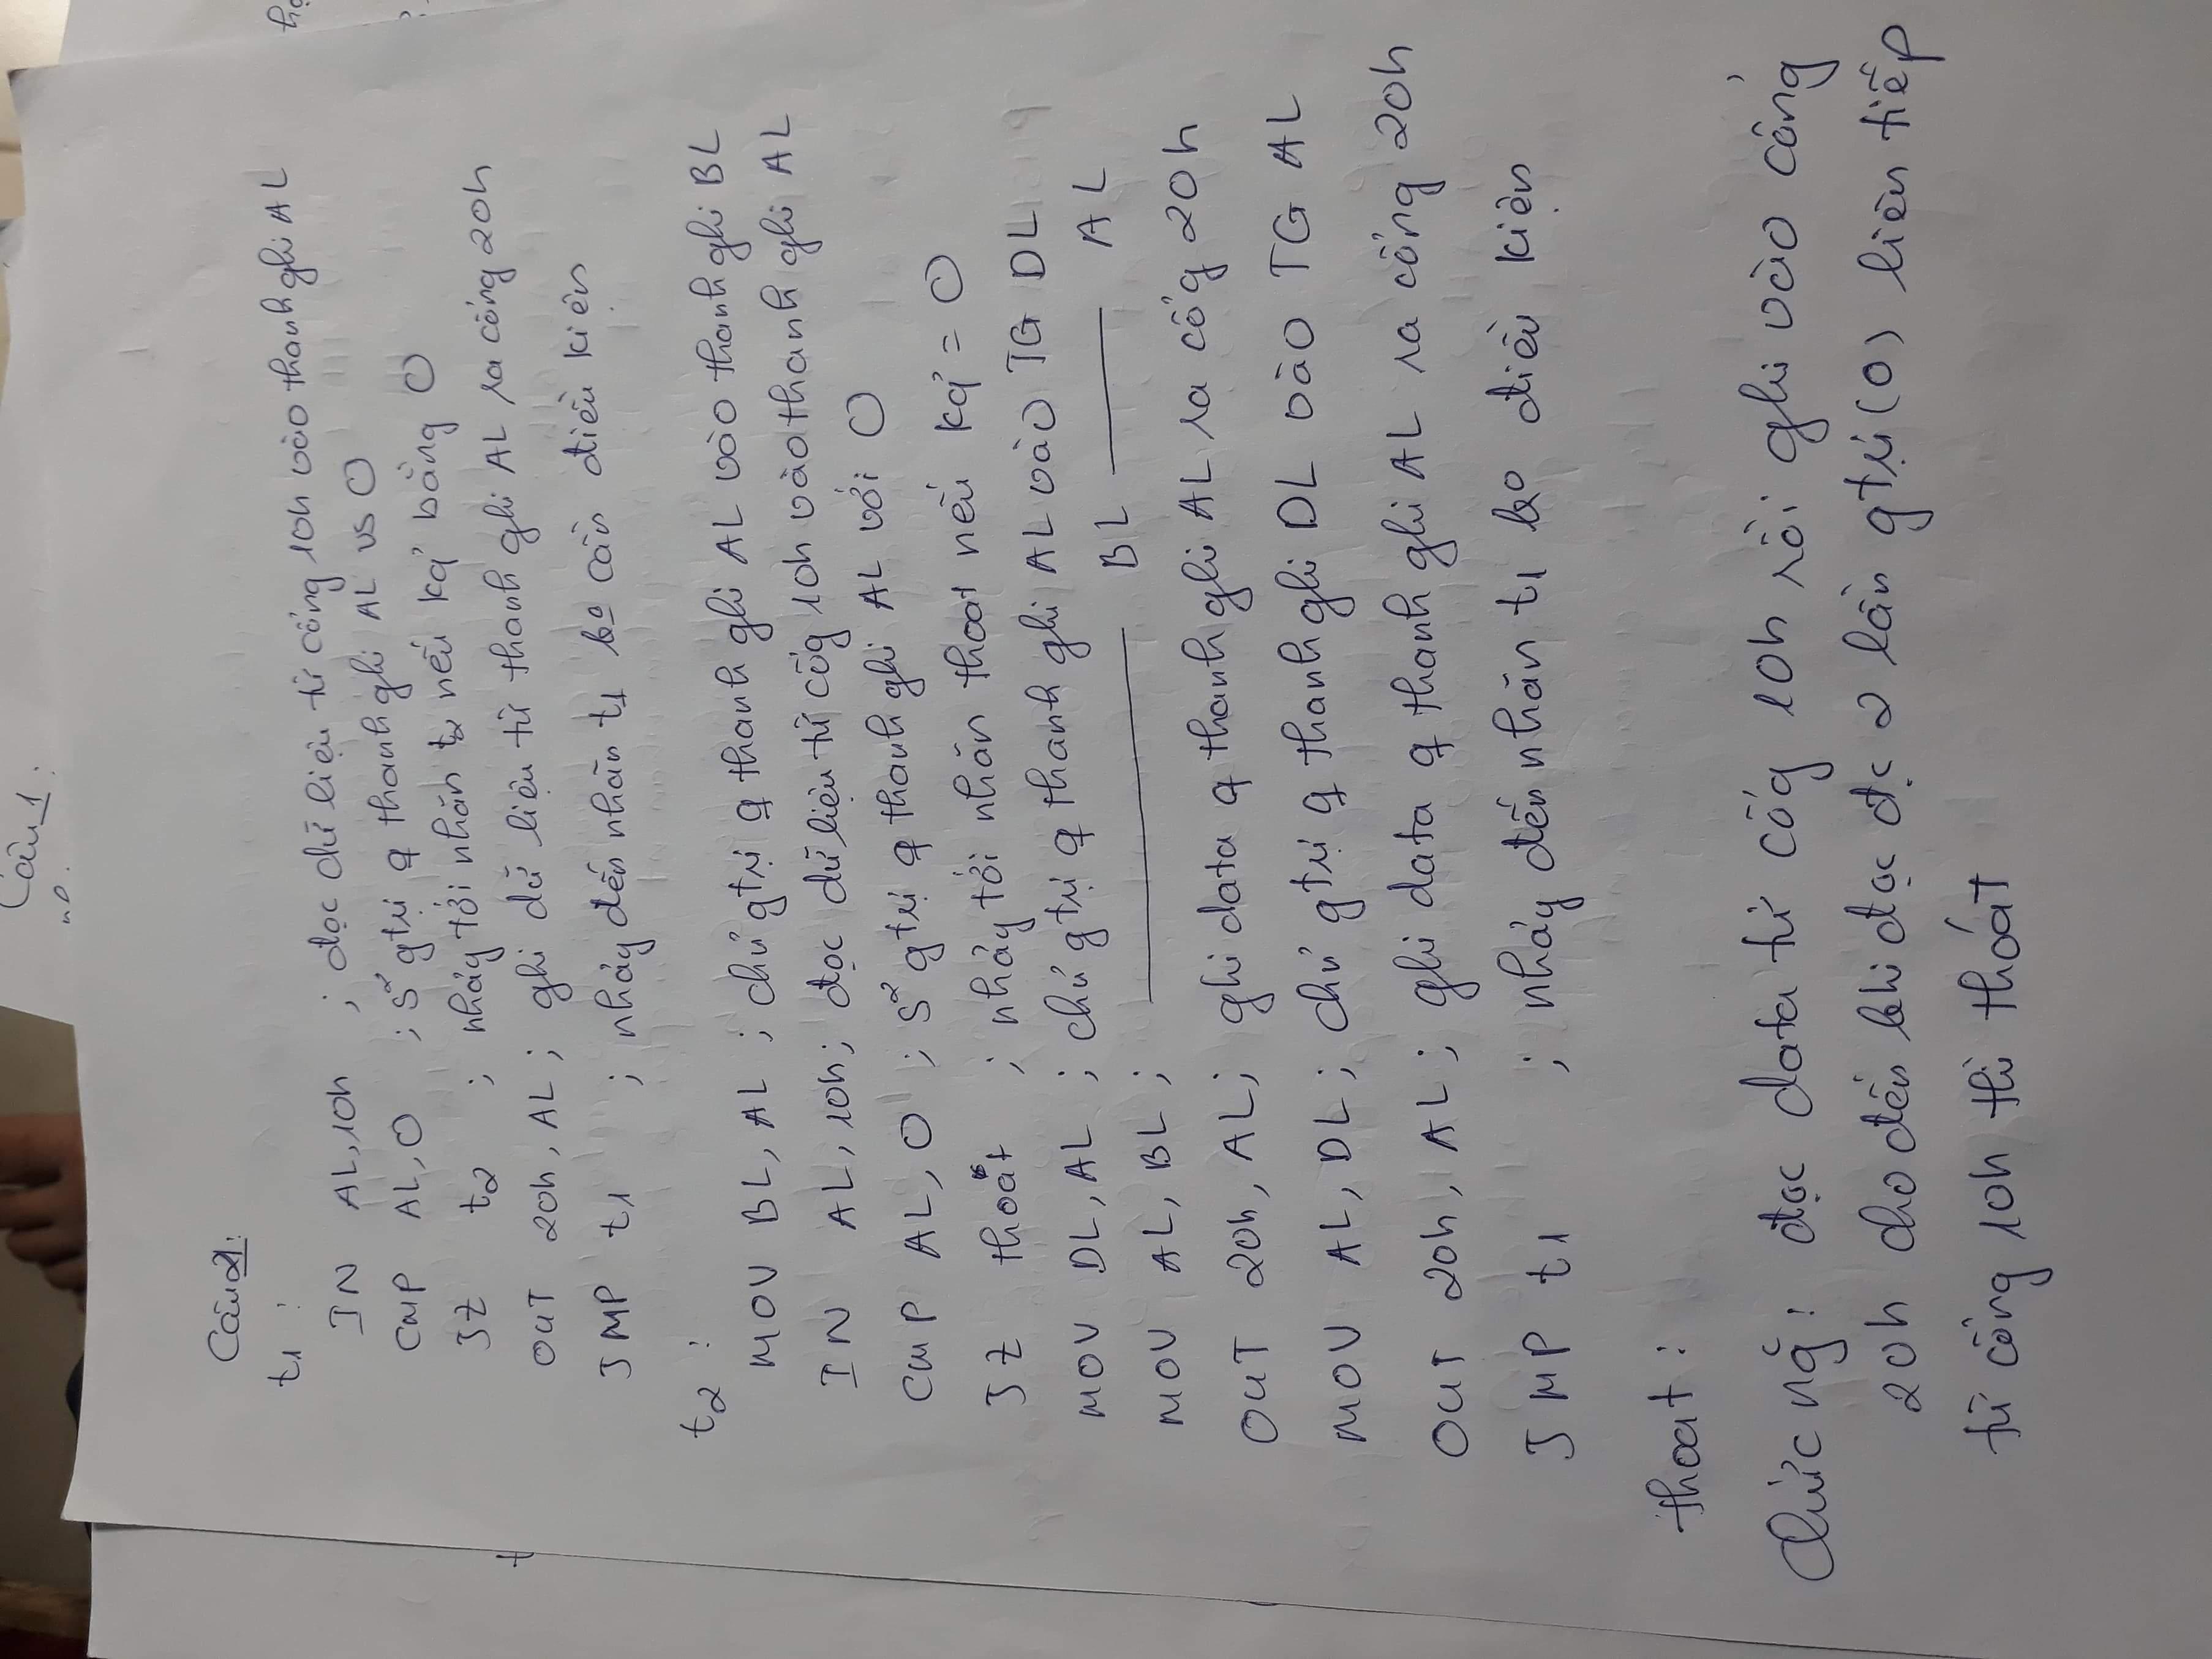 Câu 1:
Câu 2:
t1:
IN AL, 10h ; đọc dữ liệu từ cổng 10h vào thanh ghi AL
CMP AL, 0 ; s² gtrị q thanh ghi AL vs 0
JZ t2 ; nhảy tới nhãn t2 nếu kq' bằng 0
OUT 20h, AL ; ghi dữ liệu từ thanh ghi AL ra cổng 20h
JMP t1 ; nhảy đến nhãn t1 ko cần điều kiện
t2:
MOV BL, AL ; chú gtrị q thanh ghi AL vào thanh ghi BL
IN AL, 10h; đọc dữ liệu từ cổg 10h vào thanh ghi AL
CMP AL, 0 ; s² gtrị q thanh ghi AL với 0
JZ thoát ; nhảy tới nhãn thoat nếu kq' = 0
MOV DL, AL ; chú gtrị q thanh ghi AL vào TG DL
MOV AL, BL ; ——— BL ——— AL
OUT 20h, AL; ghi data q thanh ghi AL ra cổg 20h
MOV AL, DL ; chú gtrị q thanh ghi DL vào TG AL
OUT 20h, AL ; ghi data q thanh ghi AL ra cổng 20h
JMP t1 ; nhảy đến nhãn t1 ko điều kiện
thoat:
Chức ng̃: đọc data từ cổg 10h rồi ghi vào cổng
20h cho đến khi đọc đc 2 lần gtrị (0) liên tiếp
từ cổng 10h thì thoát